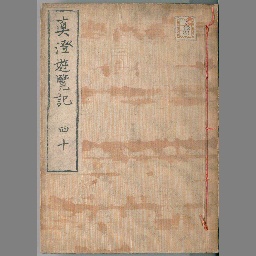 真澄遊覽記 四十